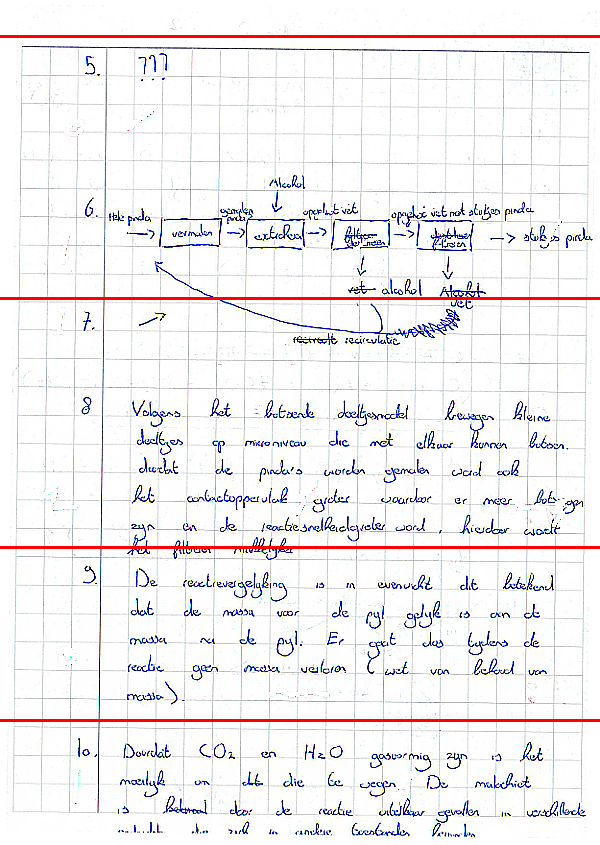 5. ???
Alcohol
6. Hele pinda gemalen pinda opgelost vet opgelost vet met stukjes pinda
vermalen extraheren stukjes pinda
vet alcohol Alcohol
vet
7.
recirculatie
8 Volgens het botsende deeltjesmodel bewegen kleine
deeltjes op microniveau die met elkaar kunnen botsen.
doordat de pinda's worden gemalen word ook
het contactoppervlak groter waardoor er meer botsingen
zijn en de reactiesnelheid groter word, hierdoor wordt
het
9. De reactievergelijking is in evenwicht dit betekend
dat de massa voor de pijl gelijk is aan de
massa na de pijl. Er gaat dus tijdens de
reactie geen massa verloren (wet van behoud van
massa).
10. Doordat CO2 en H2O gasvormig zijn is het
moeilijk om die te wegen. De
is door de reactie uit elkaar gevallen in verschillende